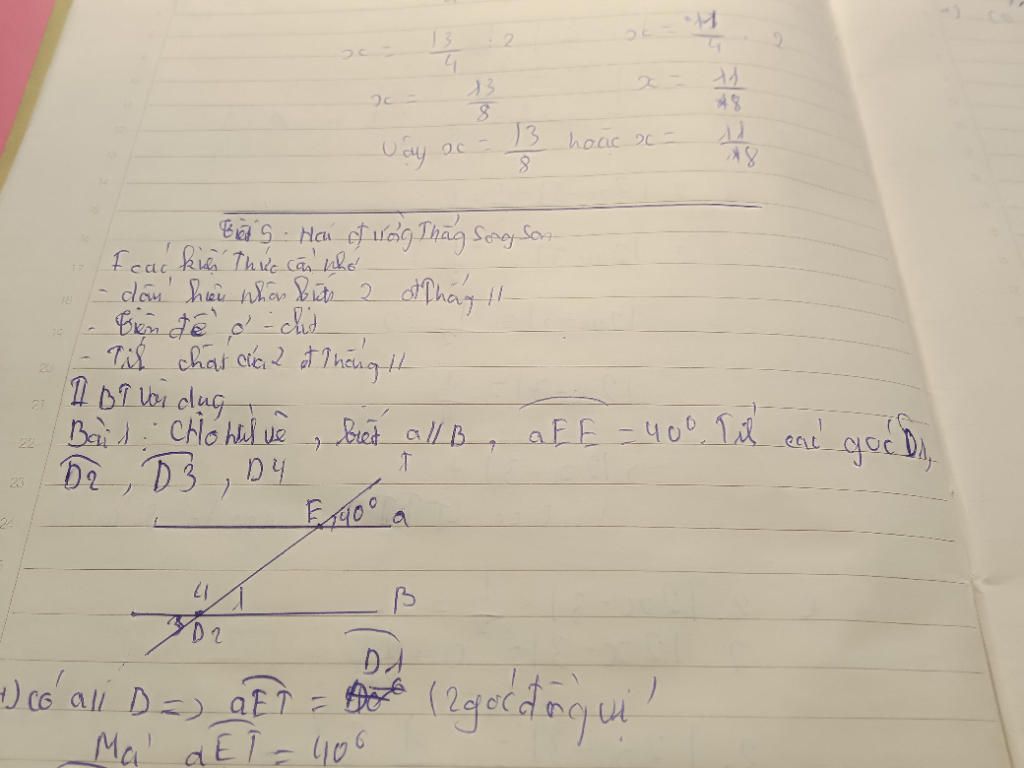 x = 13/4 : 2    x = 11/4 : 2
x = 13/8    x = 11/8
Vậy x = 13/8 hoặc x = 11/8
Hai đường Thẳng Song Son
I các kiến Thức cần nhớ
- dấu hiệu nhân biết 2 đThẳng //
- Tiên đề ơ - clit
- Tíh chất của 2 đThẳng //
II BT Vận dug
Bài 1 : Cho hìh vẽ , biết a // B , aEE = 40°. Tíh các góc D1,
D2 , D3 , D4
T
E 40° a
4 1 B
3 D2
D1
+) có a // D => aET = (2 góc đồng vị)
Mà aET = 40°